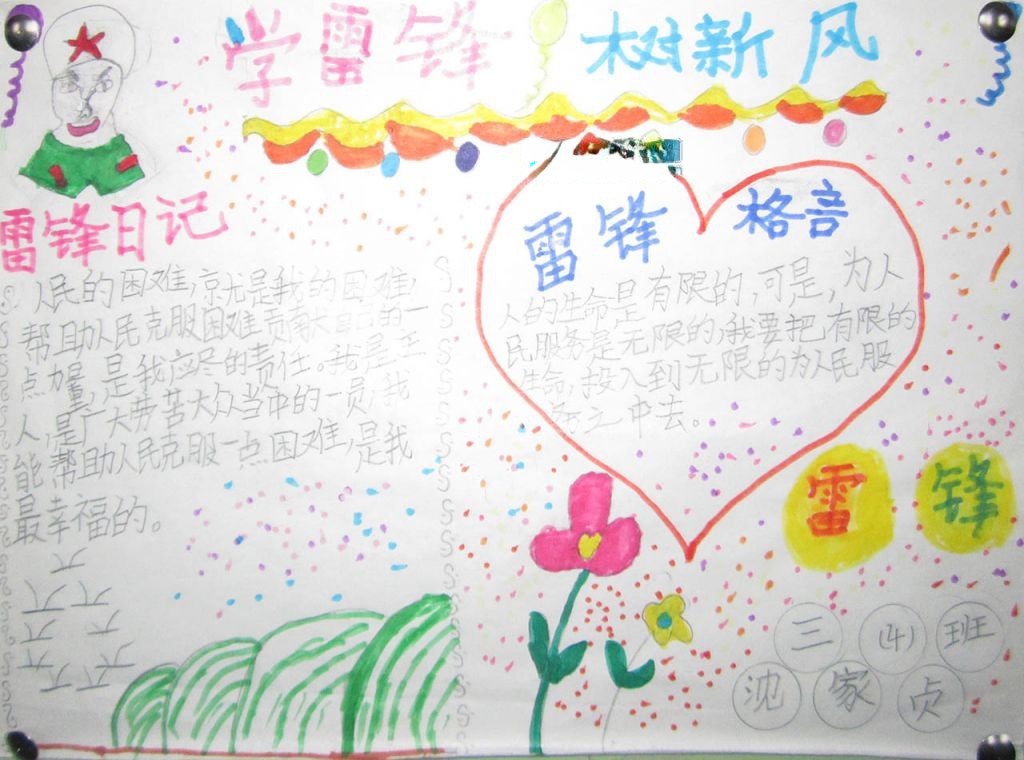 学雷锋 树新风
雷锋日记
人民的困难,京尤是我的困难,
帮助人民克服困难贡献自己的一
点力量,是我应尽的责任。我是主
人,是广大劳苦大众当中的一员,我
能帮助人民克服一点困难,是我
最幸福的。
雷锋 格言
人的生命是有限的,可是,为人
民服务是无限的,我要把有限的
生命,投入到无限的为人民服
务之中去。
雷锋
三(4)班
沈家贞